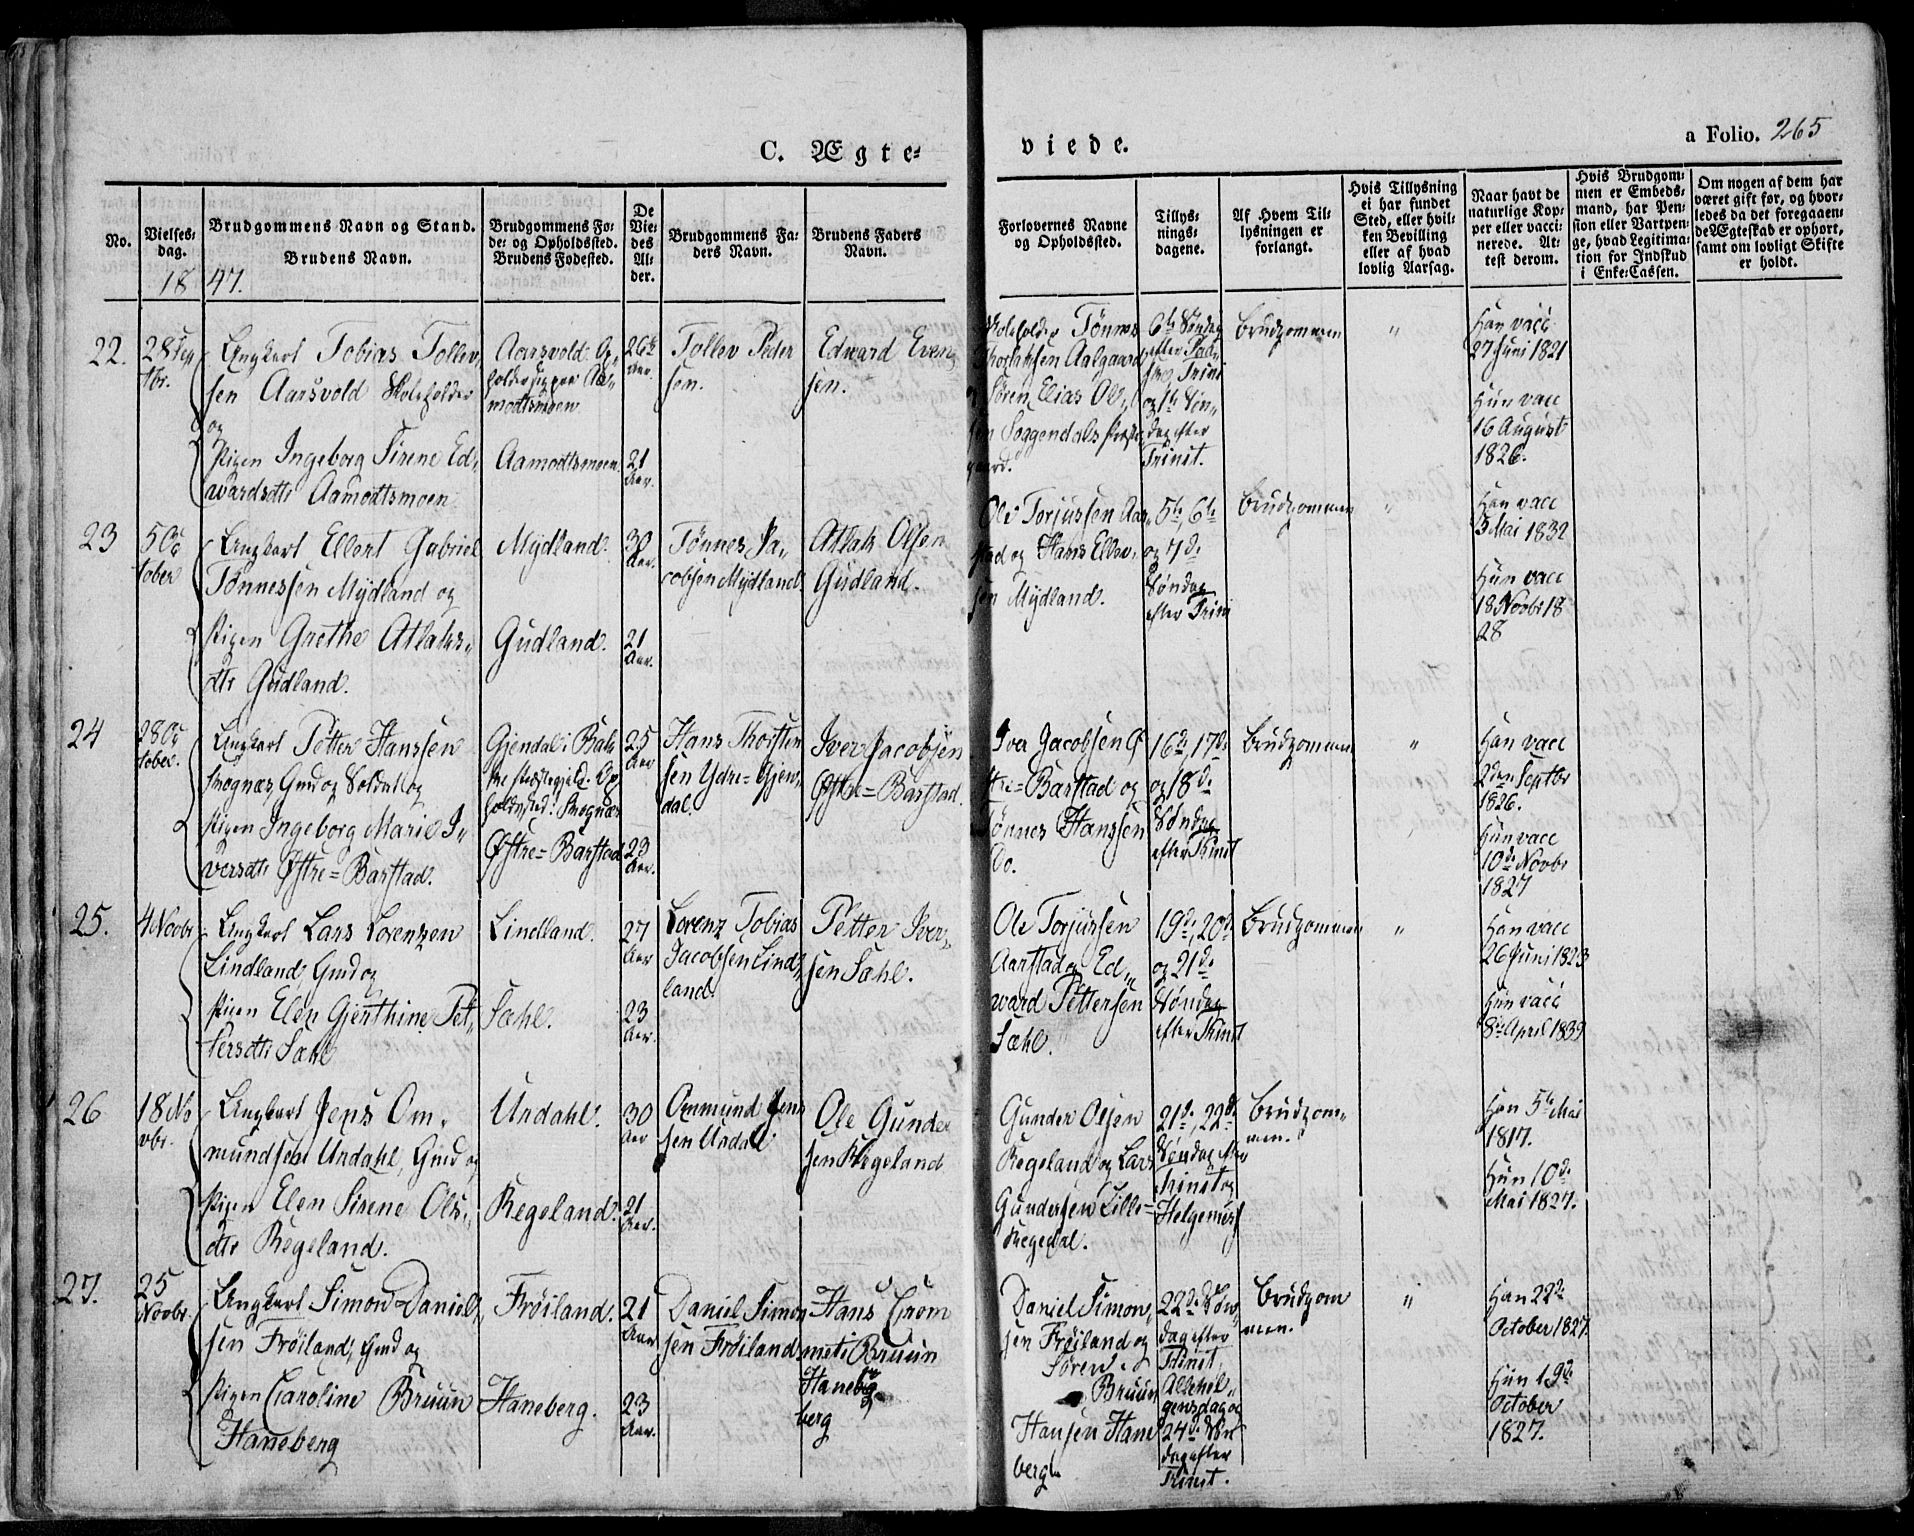 C. Ægte-
viede.
a Folio. 265
No.
Vielses-
dag.
18 47.
Brudgommens Navn og Stand.
Brudens Navn.
Brudgommens Fø-
de- og Opholdssted.
Brudens Fødested.
De
Vie-
des
Al-
der.
Brudgommens Fa-
ders Navn.
Brudens Faders
Navn.
Forlovernes Navne
og Opholdssted.
Tillys-
nings-
dagene.
Af Hvem Til-
lysningen er
forlangt.
Hvis Tillysning
ei har fundet
Sted, eller hvil-
ken Bevilling
eller af hvad
lovlig Aarsag.
Naar havt de
naturlige Kop-
per eller vacci-
nerede. At-
test derom.
Hvis Brudgom-
men er Embeds-
mand, har Pen-
sion eller Vartpen-
ge, hvad Legitima-
tion for Indskud
i Enke-Cassen.
Om nogen af dem har
været gift før, og hvor-
ledes da det foregaaen-
de Ægteskab er ophørt,
samt om lovligt Skifte
er holdt.
22.
28 Sep
tbr.
Ungkarl Tobias Tollev,,
sen Aarsvold Skoleholder
og
Pigen Ingeborg Sirene Ed,,
wardsdtr Aamodtsmoen
Aarsvold. Op,,
holder sig paa Aa,,
modtsmoen
Aamodtsmoen.
26
Aar.
21
Aar.
Tollev Peder
sen.
Edward Even,,
sen.
Skoleholder Tønnes
Aalgaard
Søren Elias Ol,,
sen Soggendals Præste,,
gaard.
6te Søndag
efter
Trini
og 7de Søn,,
dag efter
Trinit.
Brudgommen
"
Han vacc
27 Juni 1821
Hun vacc
16 August
1826.
23
5 Oc
tober
Ungkarl Ellert Gabriel
Tønnessen Mÿdland og
Pigen Grethe Atlaks,,
dtr Gudland.
Mÿdland.
Gudland.
30
Aar.
21
Aar.
Tønnes Ja,,
cobsen Mÿdland
Atlak Olsen
Gudland.
Ole Torjussen Aar,,
stad og Hans Ellev,,
sen Mÿdland.
5te, 6te
og 7de
Søndag
efter Trini
Brudgommen
"
Han vacc
3 Mai 1832
Hun vacc
18 Novbr 18
28
24
28 Oc
tober.
Ungkarl Petter Hanssen
Skognæs, Gmd og Soldat og
Pigen Ingeborg Marie I,,
versdtr Østre=Barstad.
Gjendal i Bak
ke Præstegjeld. Op
holdssted: Skognæs
Østre=Barstad
25
Aar
23
Aar.
Hans Thorsten
sen Ydre=Gjen,,
dal.
Iver Jacobsen
Østre=Barstad.
Iver Jacobsen Ø
stre=Barstad og
Tønnes Hanssen
do.
16de 17de
og 18de
Søndag
efter Trinit
Brudgommen
"
Han vacc
2den Septbr
1826.
Hun vacc
10de Novbr
1827
25.
4 Novbr
Ungkarl Lars Lorenzen
Lindland, Gmd og
Pigen Elen Gjerthine Pet,,
tersdtr Sæhl
Lindland.
Sæhl.
27
Aar
23
Aar.
Lorenz Tobias
Jacobsen Lind,,
land.
Petter Iver,,
sen Sæhl.
Ole Torjussen
Aarstad og Ed,,
ward Pettersen
Sæhl.
19de, 20de
og 21de
Søndag
efter Trinit
Brudgommen
"
Han vacc
26 Juni 1823
Hun vacc
8de April 1839
26
18 No
vbr.
Ungkarl Jens Om,,
mundsen Undahl, Gmd og
Pigen Elen Sirene Ols,,
dtr Regeland.
Undahl.
Regeland.
30
Aar
21
Aar.
Ommund Jens
sen Undal
Ole Gunder
sen Regeland
Gunder Olsen
Regeland og Lars
Gundersen Lille=
Regedal.
21de, 22de
Søndag efter
Trinit og
Helgemis
Brudgom,,
men.
Han 5te Mai
1817.
Hun 10de
Mai 1827.
27.
25
Novbr.
Ungkarl Simon Daniel,,
sen Frøiland, Gmd og
Pigen Caroline Bruun
Haneberg
Frøiland.
Haneberg.
21
Aar
23
Aar.
Daniel Simon
sen Frøiland
Hans Crom
meti Bruun
Haneberg
Daniel Simon,,
sen Frøiland og
Søren
Bruun
Hansen Hane
berg
22de Søn,,
dag efter
Trinit,
Allehel,,
gensdag og
24de Søn
dag efter
Trinit.
Brudgom
men.
"
Han 22de
October 1827.
Hun 19de
October
1827.